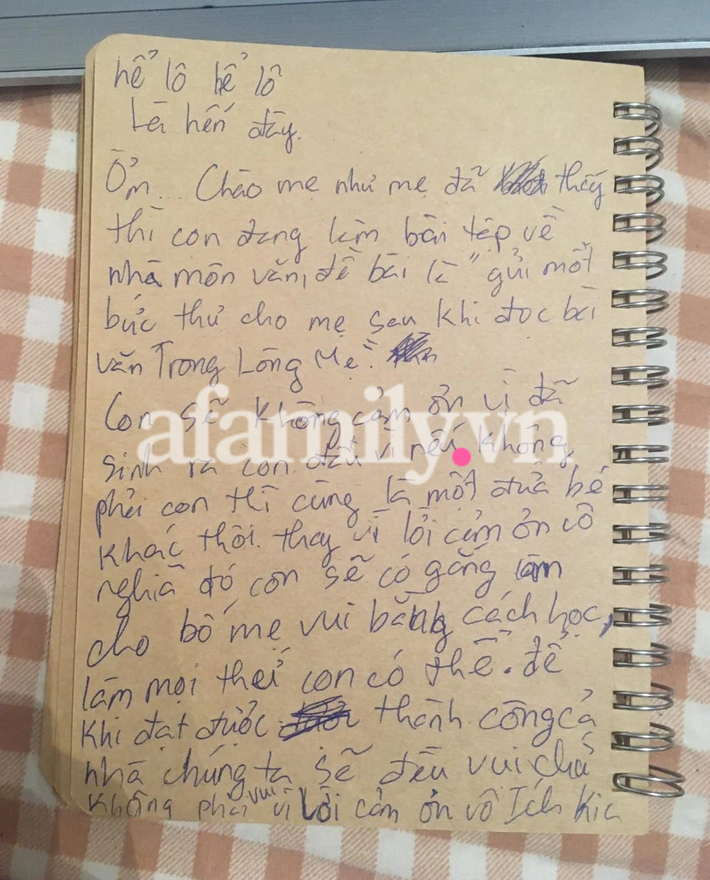 hể lô hể lô
Là hến đây.
Ờm... Chào mẹ như mẹ đã thấy
thì con đang làm bài tập về
nhà môn văn, đề bài là "gửi một
bức thư cho mẹ sau khi đọc bài
văn Trong Lòng Mẹ".
Con sẽ không cảm ơn vì đã
afamily.vn
sinh ra con đâu vì nếu không
phải con thì cũng là một đứa bé
khác thôi. thay vì lời cảm ơn vô
nghĩa đó con sẽ cố gắng làm
cho bố mẹ vui bằng cách học,
làm mọi thứ con có thể. để
khi đạt được thành công cả
nhà chúng ta sẽ đều vui chứ
không phải vui vì lời cảm ơn vô Ích kia